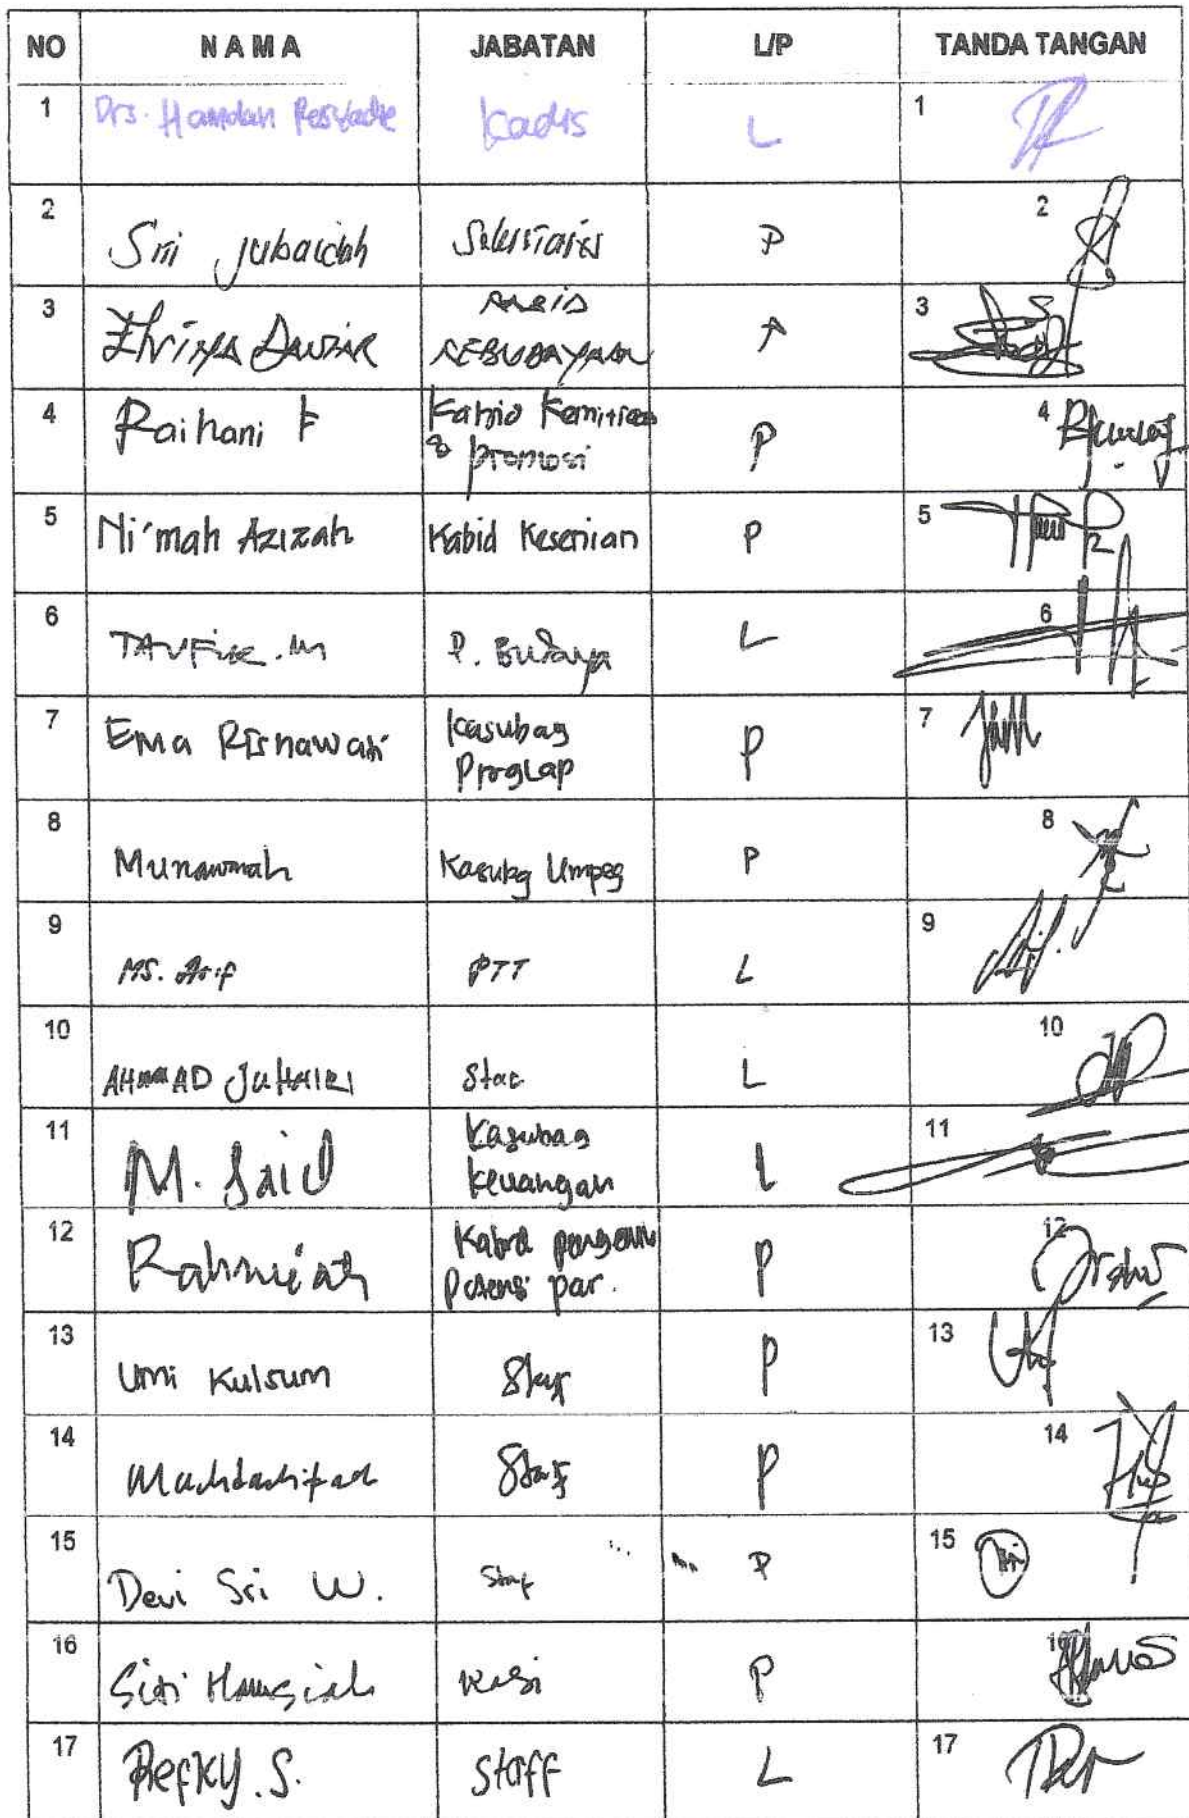 NO NAMA JABATAN L/P TANDA TANGAN
1 Drs. Hamdan Kadis L 1
2 Sri Jubaidah Sekretaris P 2
3 KABID
KEBUDAYAAN P 3
4 Raihani F Kabid Kemitraan
& promosi P 4
5 Ni'mah Azizah Kabid Kesenian P 5
6 TAUFIK.M P. Budaya L 6
7 Ema Risnawati Kasubag
Proglap P 7
8 Munawarah Kasubag Umpeg P 8
9 MS. Arif PTT L 9
10 AHMAD JUHAIRI Staf L 10
11 M. Said Kasubag
keuangan L 11
12 Rahmiah Kabid
potensi par. P 12
13 Umi Kulsum Staf P 13
14 Staf P 14
15 Devi Sri W. Staf P 15
16 Siti Kasi P 16
17 Refky.S. Staff L 17